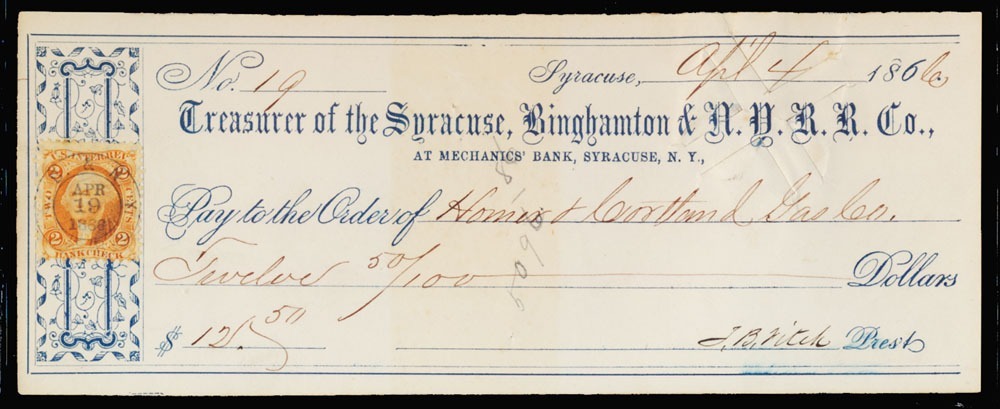 No. 19 Syracuse, Apl 4 1866
Treasurer of the Syracuse, Binghamton & N. Y. R. R. Co.,
AT MECHANICS' BANK, SYRACUSE, N. Y.,
Pay to the Order of Homer & Cortland Gas Co.
Twelve 50/100 Dollars
$ 12.50
J. B. Fitch Prest
U.S. INTER. REV.
2 2
TWO CENTS
APR
19
2 2
BANK CHECK